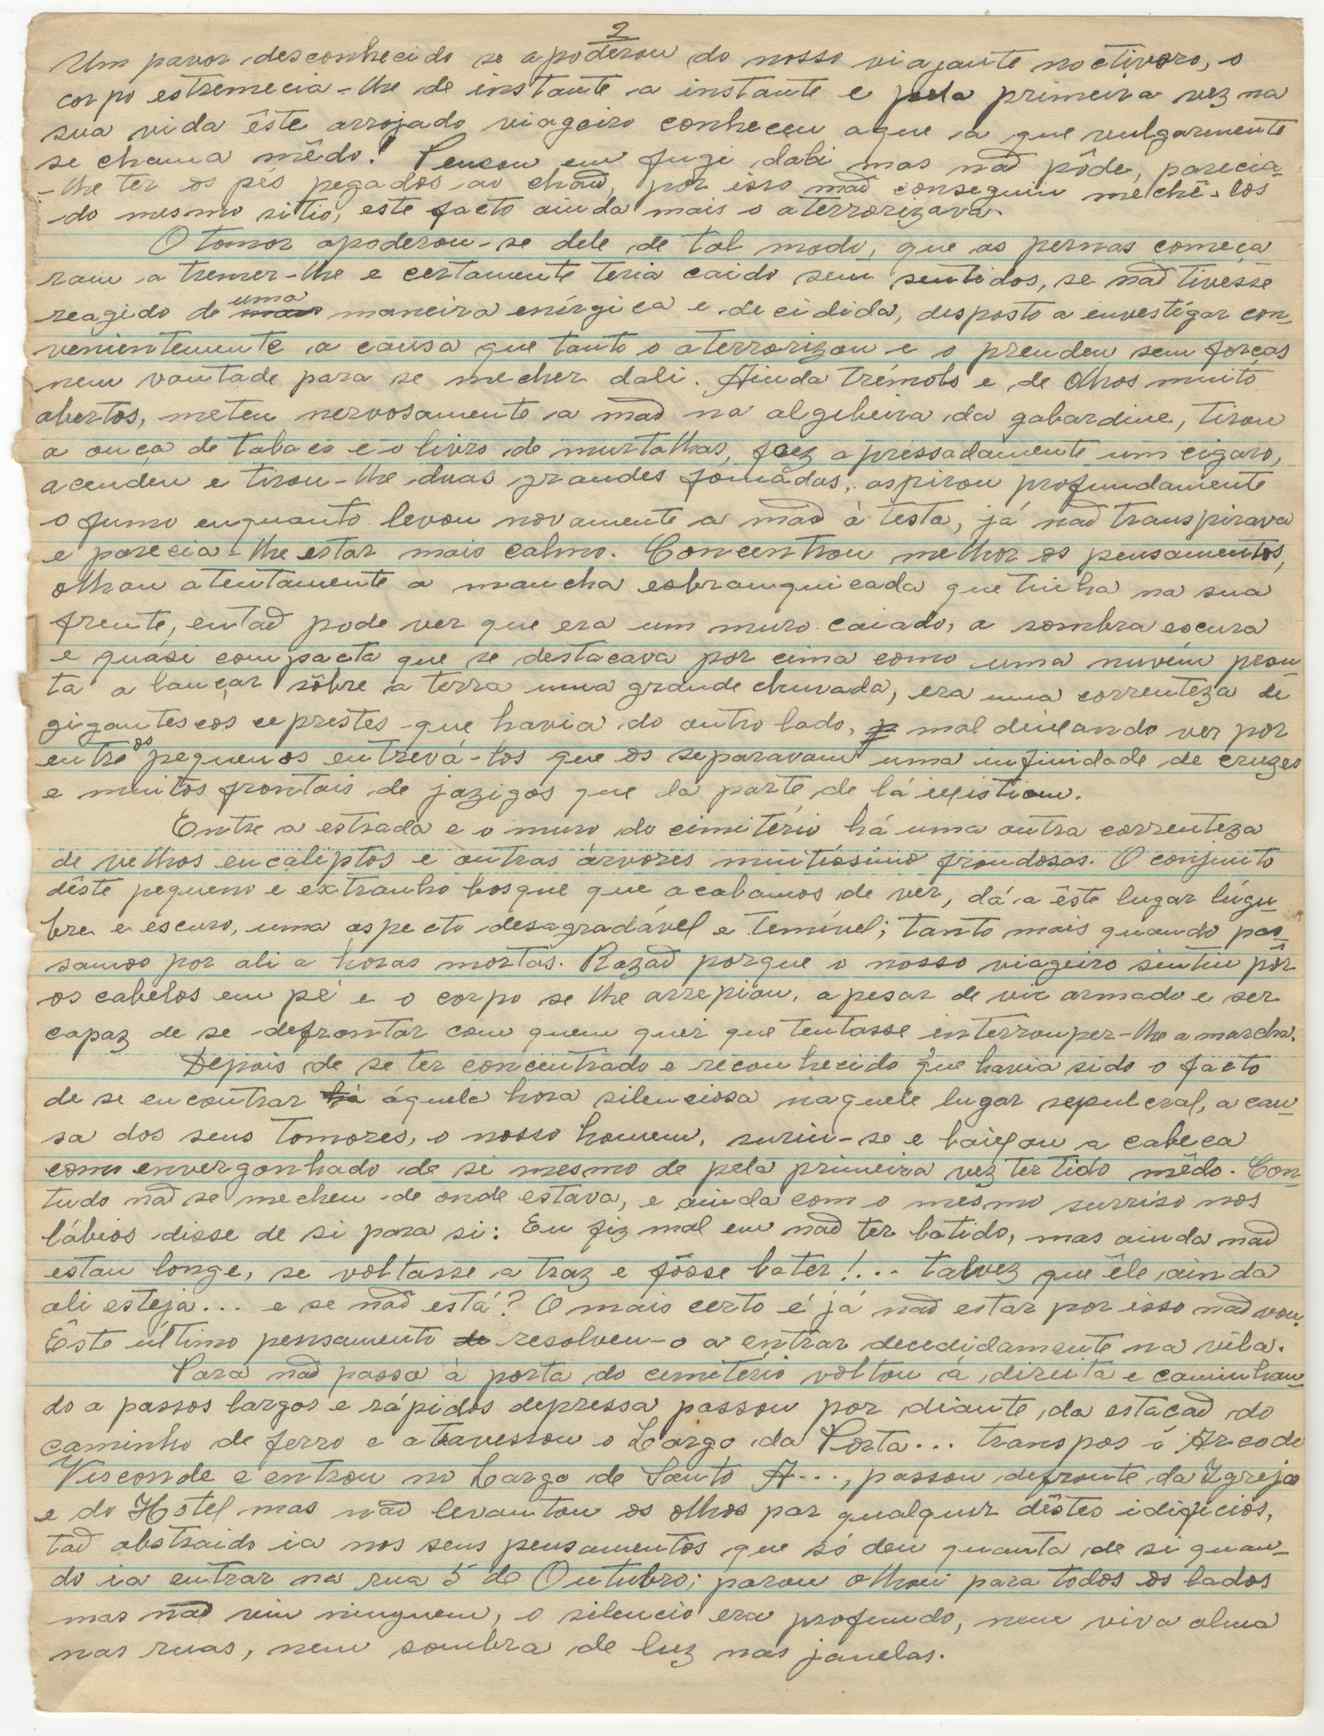 2
Um pavor desconhecido se apoderou do nosso viajante noctivoro, o
corpo estremecia-lhe de instante a instante e pela primeira vez na
sua vida êste arrojado viageiro conheceu aque a que vulgarmente
se chama mêdo! Pensou em fugi dali mas não pôde, parecia-
-lhe ter os pés pegados ao chão, por isso não conseguiu mechê-los
do mesmo sitio, este facto ainda mais o aterrorizava.
O tomor apoderou-se dele de tal modo, que as pernas começa
ram a tremer-lhe e certamente teria caido sem sentidos, se não tivesse
reagido de uma maneira enírgica e decidida, desposto a envestigar con-
venientemente a causa que tanto o aterrorizou e o prendeu sem forças
nem vontade para se mecher dali. Ainda trémolo e de olhos muito
abertos, meteu nervosamente a mão na algibeira da gabardine, tirou
a onça de tabaco e o livro de murtalhas, fez apressadamente um cigaro,
acendeu e tirou-lhe duas grandes fomádas, aspirou profundamente
o fumo enquanto levou novamente a mão à testa, já não transpirava
e parecia-lhe estar mais calmo. Concentrou melhor os pensamentos,
olhou atentamente a mancha esbranquicada que tinha na sua
frente, então pode ver que era um muro caiado, a sombra escura
e quási compacta que se destacava por cima como uma nuvém pron-
ta a lançar sôbre a terra uma grande chuvada, era uma correnteza de
gigantescos ceprestes que havia do outro lado, mal deixando ver por
entre os pequenos entrevá-los que os separavam uma infinidade de cruzes
e muitos frontais de jazigos que la parte de lá ixistiam.
Entre a estrada e o muro do cimitério há uma outra correnteza
de velhos eucaliptos e outras árvores muitíssimo frondosas. O conjunto
dêste pequeno e extranho bosque que acabamos de ver, dá a êste lugar lúgu-
bre e escuro, uma aspecto desagradável e temível; tanto mais quando pas-
samos por ali a horas mortas. Razão porque o nosso viageiro sentiu pôr
os cabelos em pé e o corpo se lhe arrepiou, apesar de vir armado e ser
capaz de se defrontar com quem quer que tentasse interrouper-lhe a marcha.
Depois de se ter concentrado e reconhecido que havia sido o facto
de se encontrar áquela hora silenciosa naquele lugar sepulcral, a cau-
sa dos seus tomores, o nosso homem, suriu-se e baixou a cabeça
como envergonhado de si mesmo de pela primeira vez ter tido mêdo. Con-
tudo não se mecheu de onde estava, e ainda com o mesmo surriso nos
lábios disse de si para si: Eu fiz mal em não ter batido, mas ainda não
estou longe, se voltasse a traz e fôsse bater!... talvez que êle ainda
ali esteja... e se não está? O mais certo é já não estar por isso não vou.
Êste último pensamento resolveu-o a entrar decedidamente na vila.
Para não passa à porta do cemitério voltou á direita e caminhan-
do a passos largos e rápidos depressa passou por diante da estacão do
caminho de ferro e atravessou o Largo da Porta... transpos o Arco do
Visconde e entrou no Largo de Santo A..., passou defronte da Igreja
e do Hotel mas não levantou os olhos par qualquer dêstes idifícios,
tão abstraido ia nos seus pensamentos que só deu quanta de si quan-
do ia entrar na rua 5 de Outubro; parou olhou para todos os lados
mas não viu ninguem, o silencio era profundo, nem viva alma
nas ruas, nem sombra de luz nas janelas.